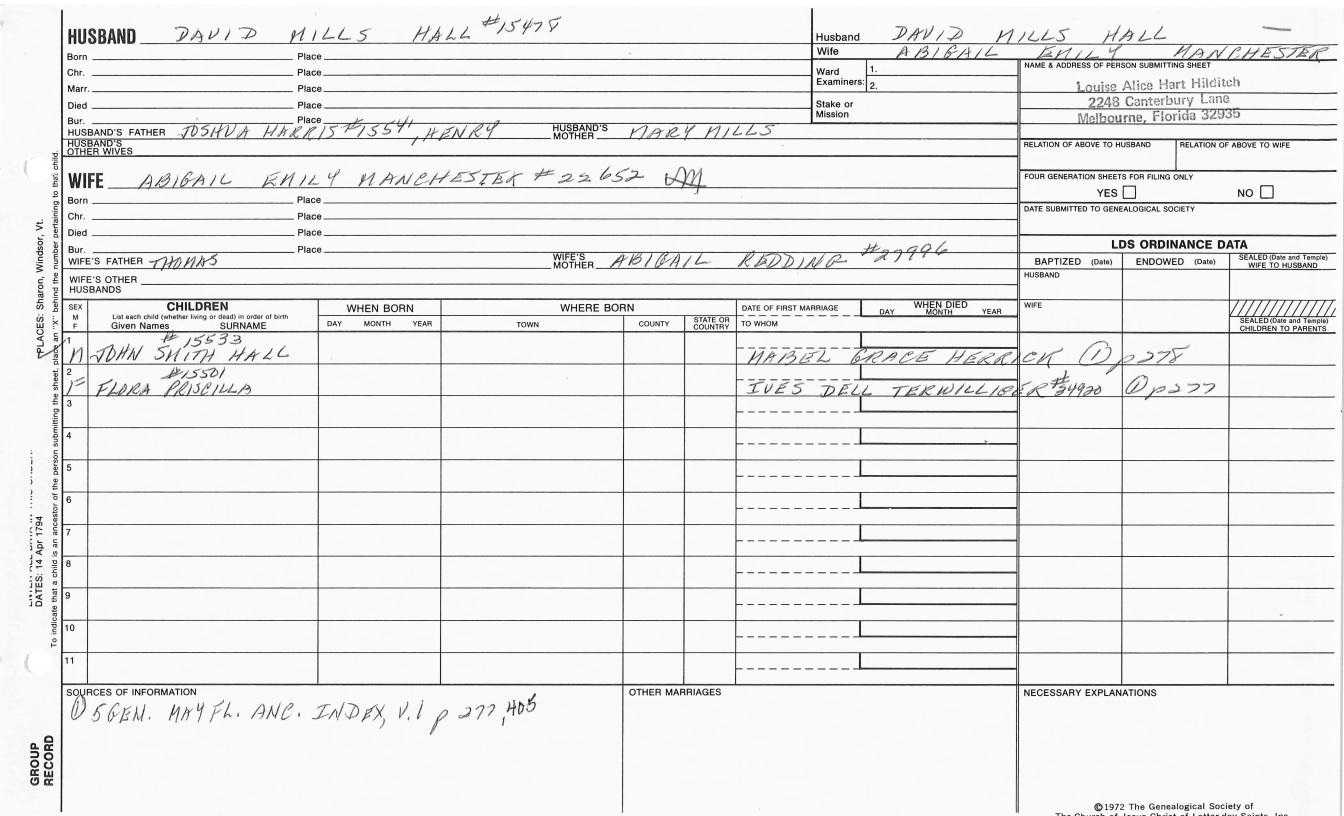 HUSBAND DAVID MILLS HALL #15478
Born Place
Chr. Place
Marr. Place
Died Place
Bur. Place
HUSBAND'S FATHER JOSHUA HARRIS #15541, HENRY HUSBAND'S MOTHER MARY MILLS
HUSBAND'S OTHER WIVES
WIFE ABIGAIL EMILY MANCHESTER #22652
Born Place
Chr. Place
Died Place
Bur. Place
WIFE'S FATHER THOMAS WIFE'S MOTHER ABIGAIL REDDING #27996
WIFE'S OTHER HUSBANDS
Husband DAVID MILLS HALL —
Wife ABIGAIL EMILY MANCHESTER
Ward Examiners: 1.
2.
Stake or Mission
NAME & ADDRESS OF PERSON SUBMITTING SHEET
Louise Alice Hart Hilditch
2248 Canterbury Lane
Melbourne, Florida 32935
RELATION OF ABOVE TO HUSBAND RELATION OF ABOVE TO WIFE
FOUR GENERATION SHEETS FOR FILING ONLY
YES NO
DATE SUBMITTED TO GENEALOGICAL SOCIETY
LDS ORDINANCE DATA
BAPTIZED (Date) ENDOWED (Date) SEALED (Date and Temple) WIFE TO HUSBAND
HUSBAND
WIFE
SEALED (Date and Temple) CHILDREN TO PARENTS
SEX M F CHILDREN WHEN BORN WHERE BORN DATE OF FIRST MARRIAGE WHEN DIED
List each child (whether living or dead) in order of birth
Given Names SURNAME DAY MONTH YEAR TOWN COUNTY STATE OR COUNTRY TO WHOM DAY MONTH YEAR
1 #15533
M JOHN SMITH HALL MABEL GRACE HERRICK ① p278
2 #15501
F FLORA PRISCILLA IVES DELL TERWILLIGER #24920 ① p277
3
4
5
6
7
8
9
10
11
SOURCES OF INFORMATION
① 5 GEN. MAYFL. ANC. INDEX, V.1 p 277, 405
OTHER MARRIAGES
NECESSARY EXPLANATIONS
©1972 The Genealogical Society of
The Church of Jesus Christ of Latter-day Saints, Inc.
GROUP RECORD
DATES: 14 Apr 1794
PLACES: Sharon, Windsor, Vt.
To indicate that a child is an ancestor of the person submitting the sheet, place an "X" behind the number pertaining to that child.